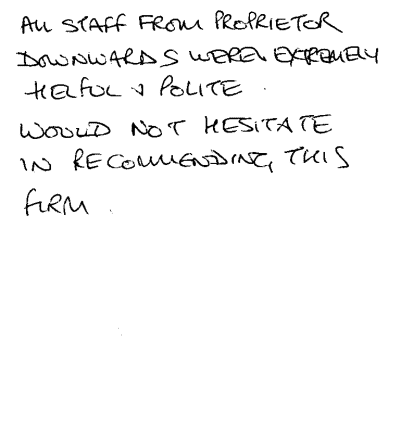 ALL STAFF FROM PROPRIETOR
DOWNWARDS WERE EXTREMELY
HELFUL & POLITE.
WOULD NOT HESITATE
IN RECOMMENDING THIS
FIRM.